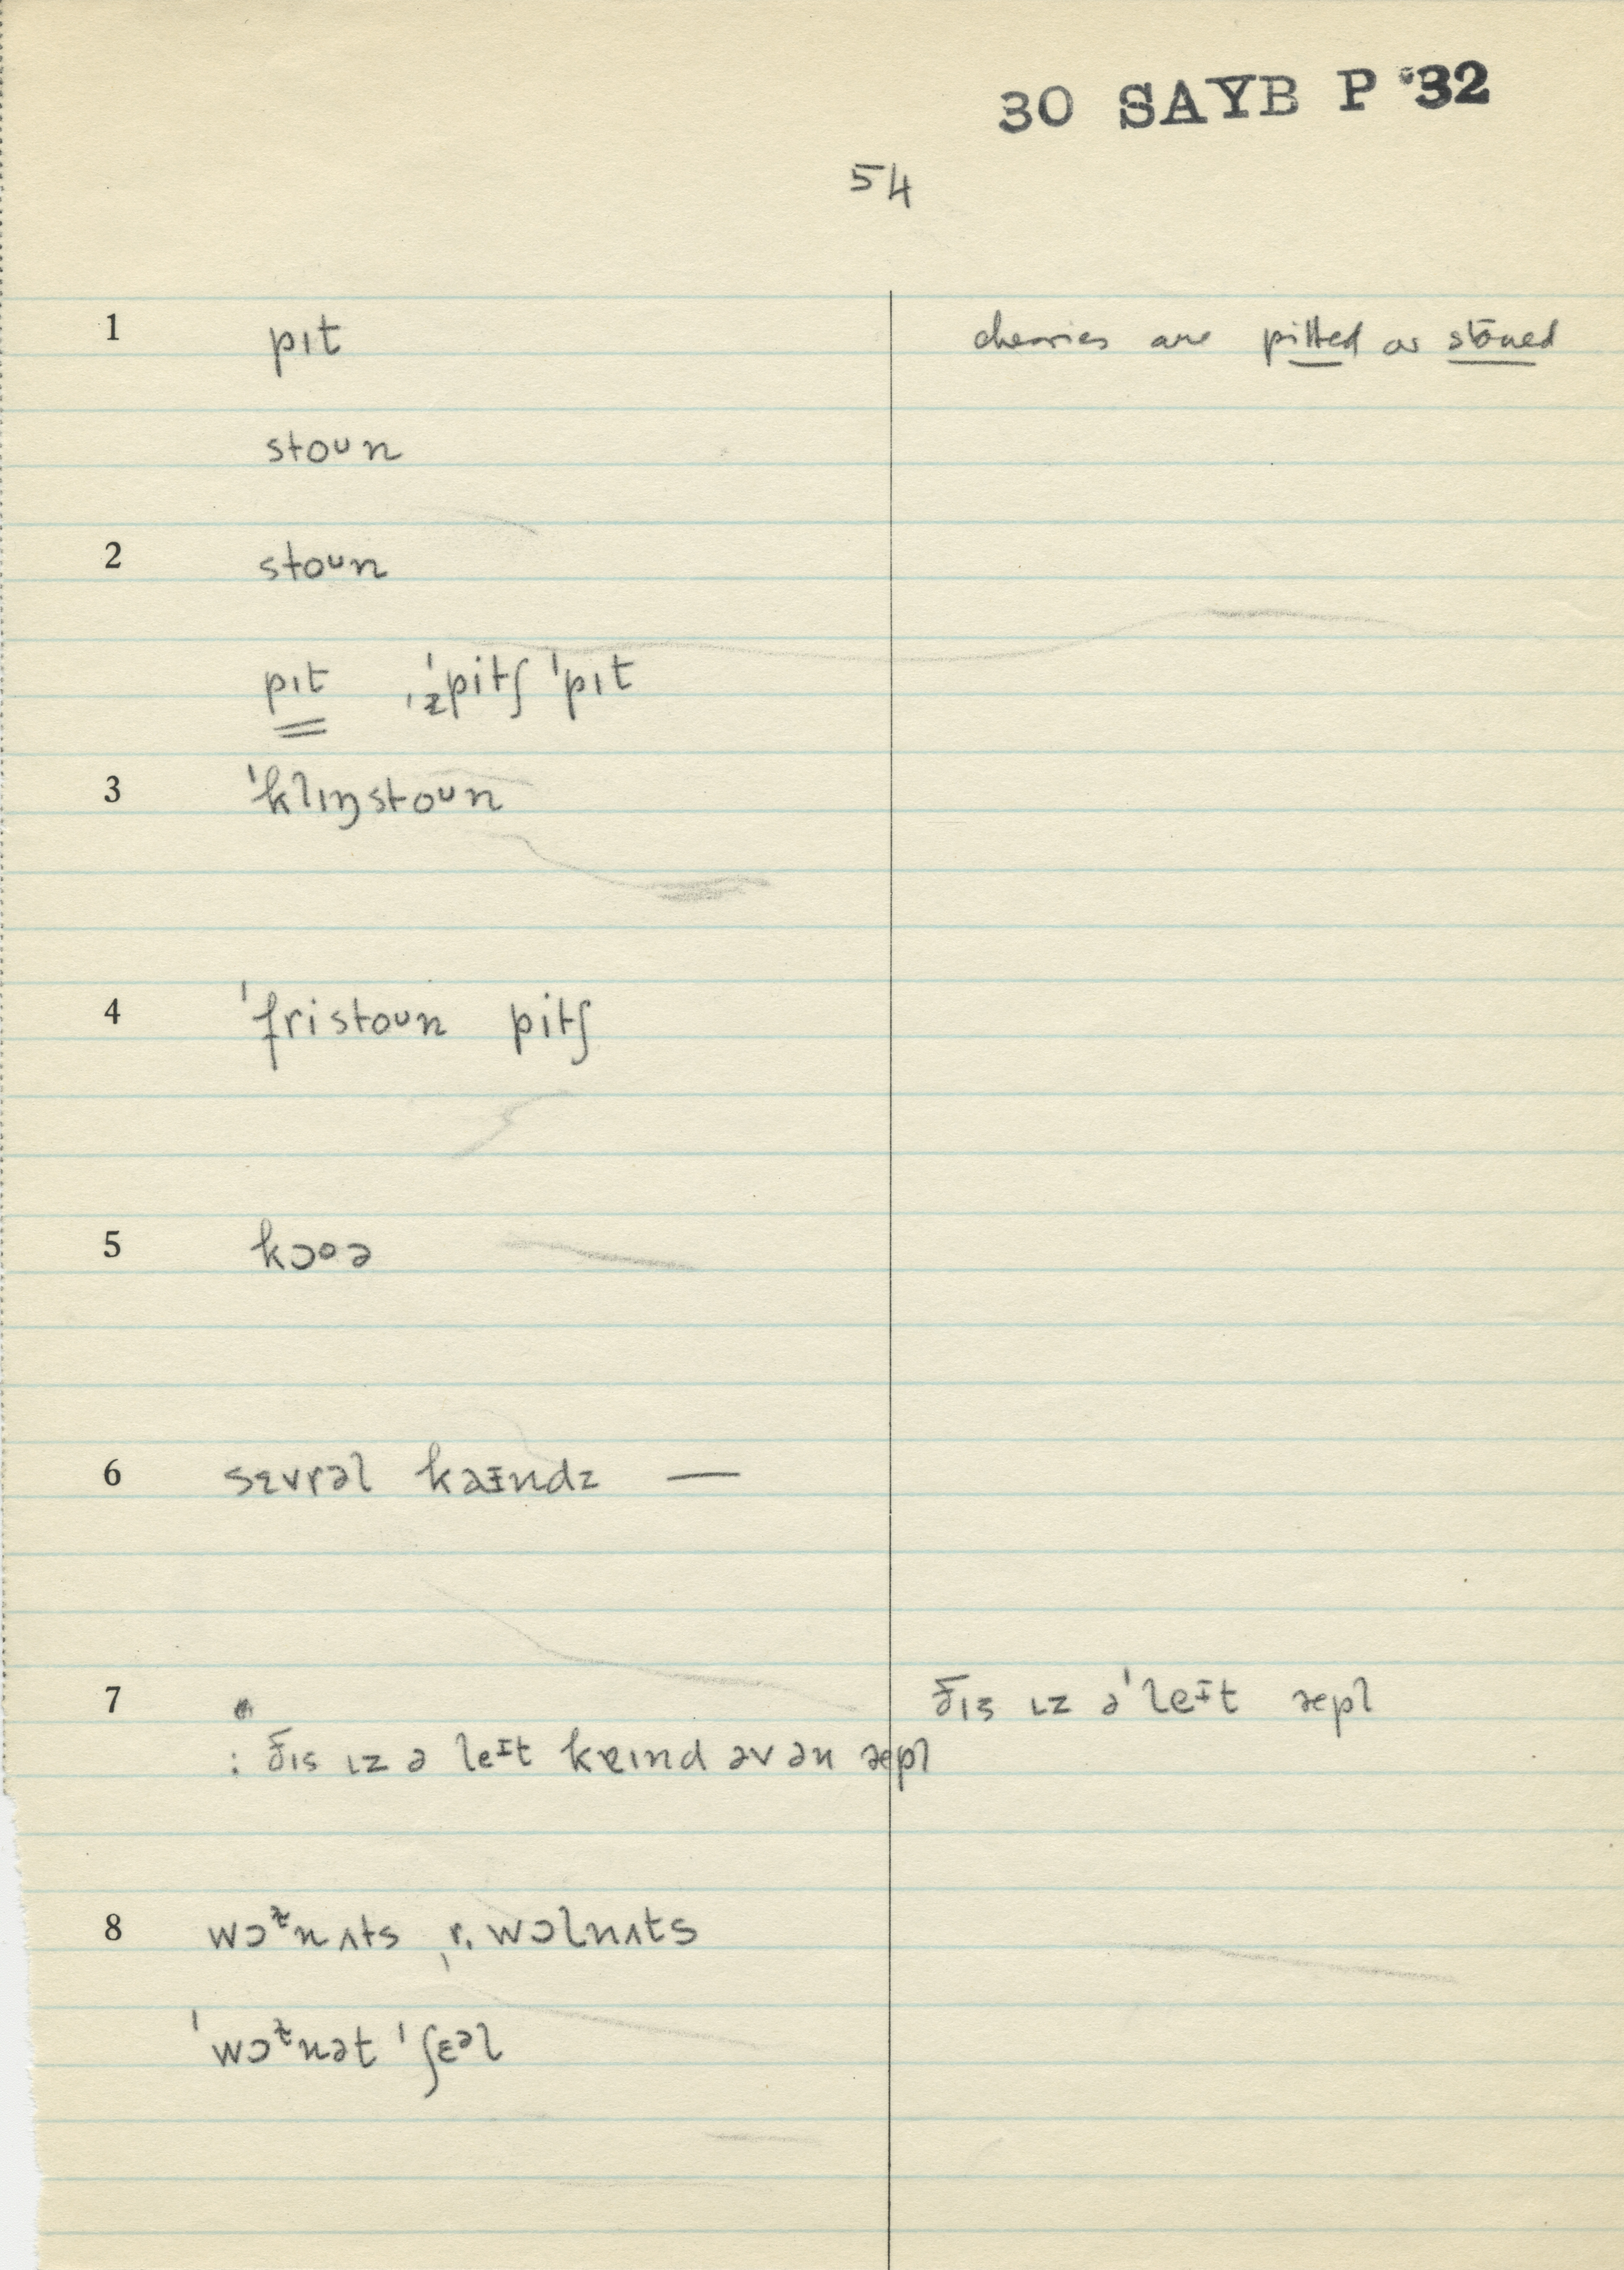 30 SAYB P '32
54
1 pɪt cherries are pitted or stoned
stoᴜn
2 stoᴜn
pɪt ˌɪzˈpitʃ ˈpɪt
3 ˈklɪŋstoᴜn
4 ˈfristoᴜn pitʃ
5 kɔoə
6 sɛvrəl kaɪndz —
7 ðɪs ɪz əˈleɪt æpl
: ðɪs ɪz ə leɪt kɐɪnd əv ən æpl
8 wɔᵗnʌts r. wɔlnʌts
ˈwɔᵗnət ˈʃɛəl